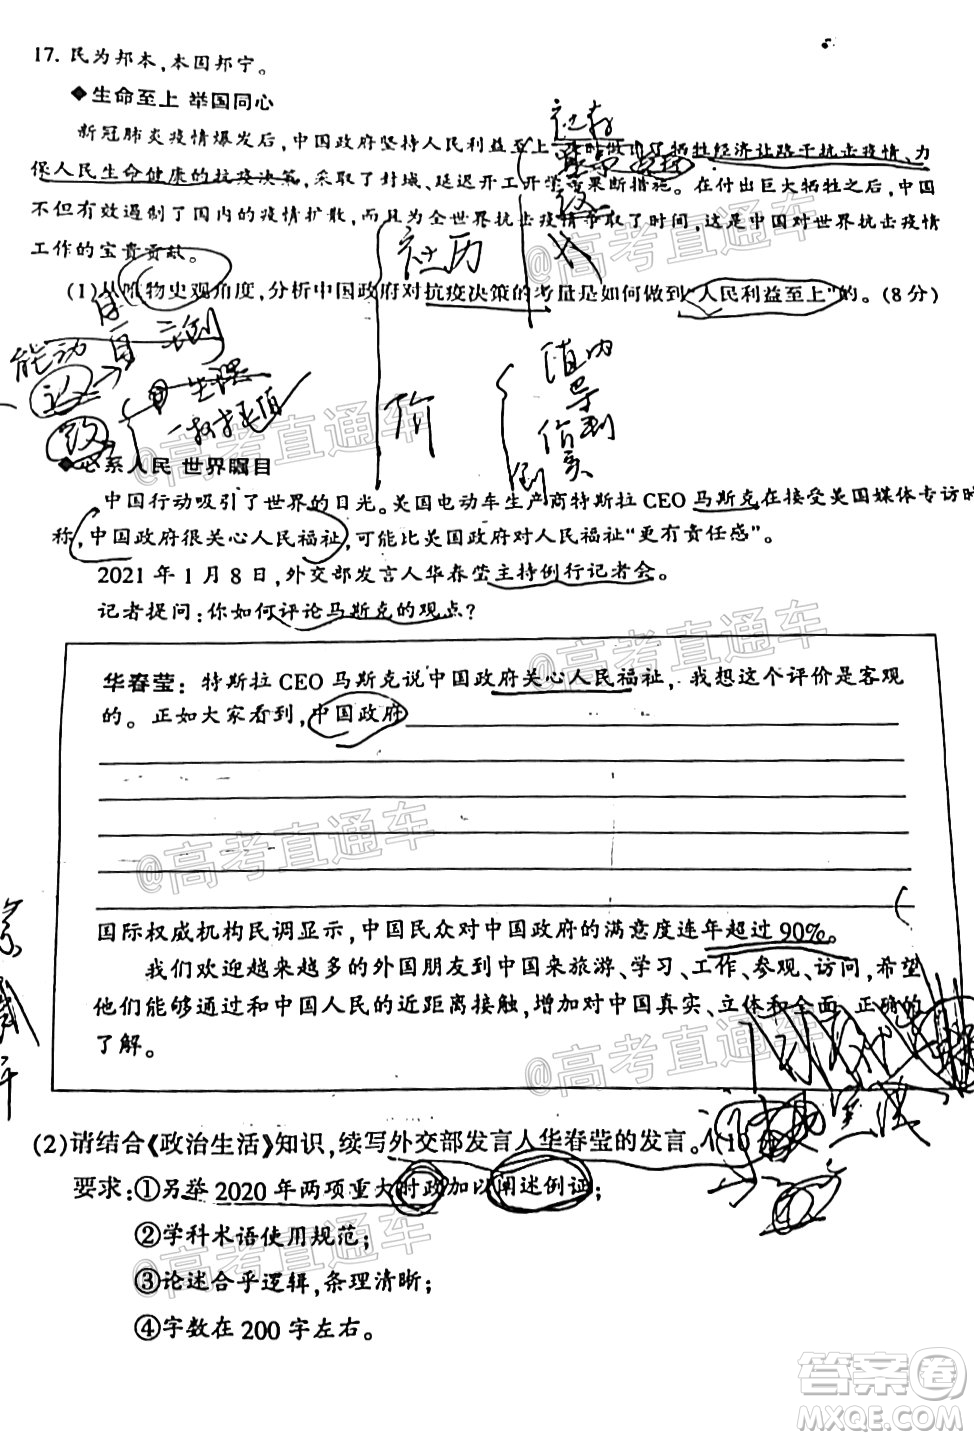 17. 民为邦本,本固邦宁。
◆生命至上 举国同心
新冠肺炎疫情爆发后,中国政府坚持人民利益至上,牺牲经济让路于抗击疫情、力
保人民生命健康的抗疫决策,采取了封城、延迟开工开学等果断措施。在付出巨大牺牲之后,中国
不但有效遏制了国内的疫情扩散,而且为全世界抗击疫情争取了时间,这是中国对世界抗击疫情
工作的宝贵贡献。
(1)从唯物史观角度,分析中国政府对抗疫决策的考量是如何做到“人民利益至上”的。(8分)
社历
能动
价
◆心系人民 世界瞩目
中国行动吸引了世界的目光。美国电动车生产商特斯拉CEO马斯克在接受美国媒体专访时
称,中国政府很关心人民福祉,可能比美国政府对人民福祉“更有责任感”。
2021年1月8日,外交部发言人华春莹主持例行记者会。
记者提问:你如何评论马斯克的观点?
华春莹:特斯拉CEO马斯克说中国政府关心人民福祉,我想这个评价是客观
的。正如大家看到,中国政府
国际权威机构民调显示,中国民众对中国政府的满意度连年超过90%。
我们欢迎越来越多的外国朋友到中国来旅游、学习、工作、参观、访问,希望
他们能够通过和中国人民的近距离接触,增加对中国真实、立体和全面、正确的
了解。
(2)请结合《政治生活》知识,续写外交部发言人华春莹的发言。(10
要求:①另举2020年两项重大时政加以阐述例证;
②学科术语使用规范;
③论述合乎逻辑,条理清晰;
④字数在200字左右。
@高考直通车
@高考直通车
@高考直通车
@高考直通车
@高考直通车
@高考直通车
答案圈
MXQE.COM